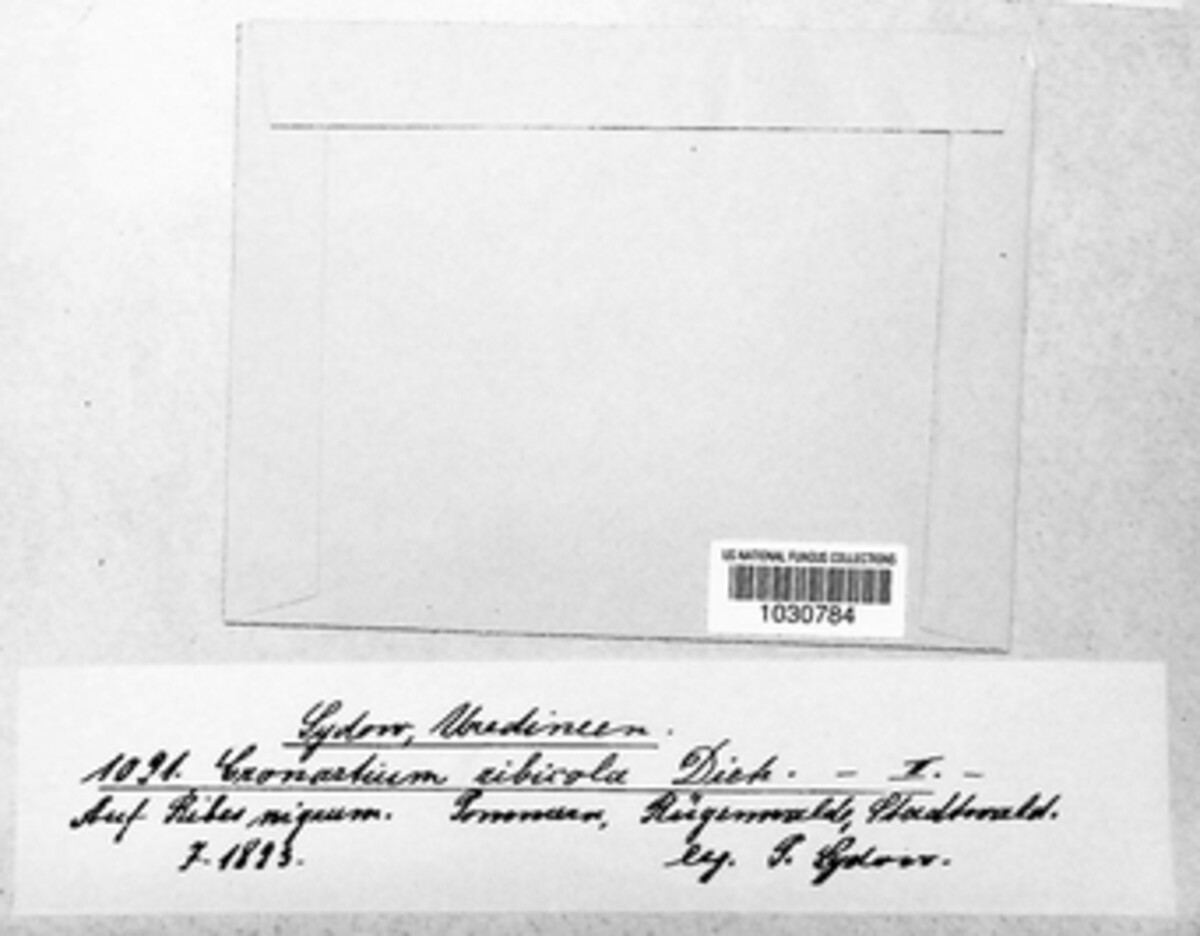 US NATIONAL FUNGUS COLLECTIONS
1030784
Sydow, Uredineen.
1091. Cronartium ribicola Diet. – II. –
Auf Ribes nigrum. Pommern, Rügenwalde, Stadtwald.
7. 1893. leg. P. Sydow.